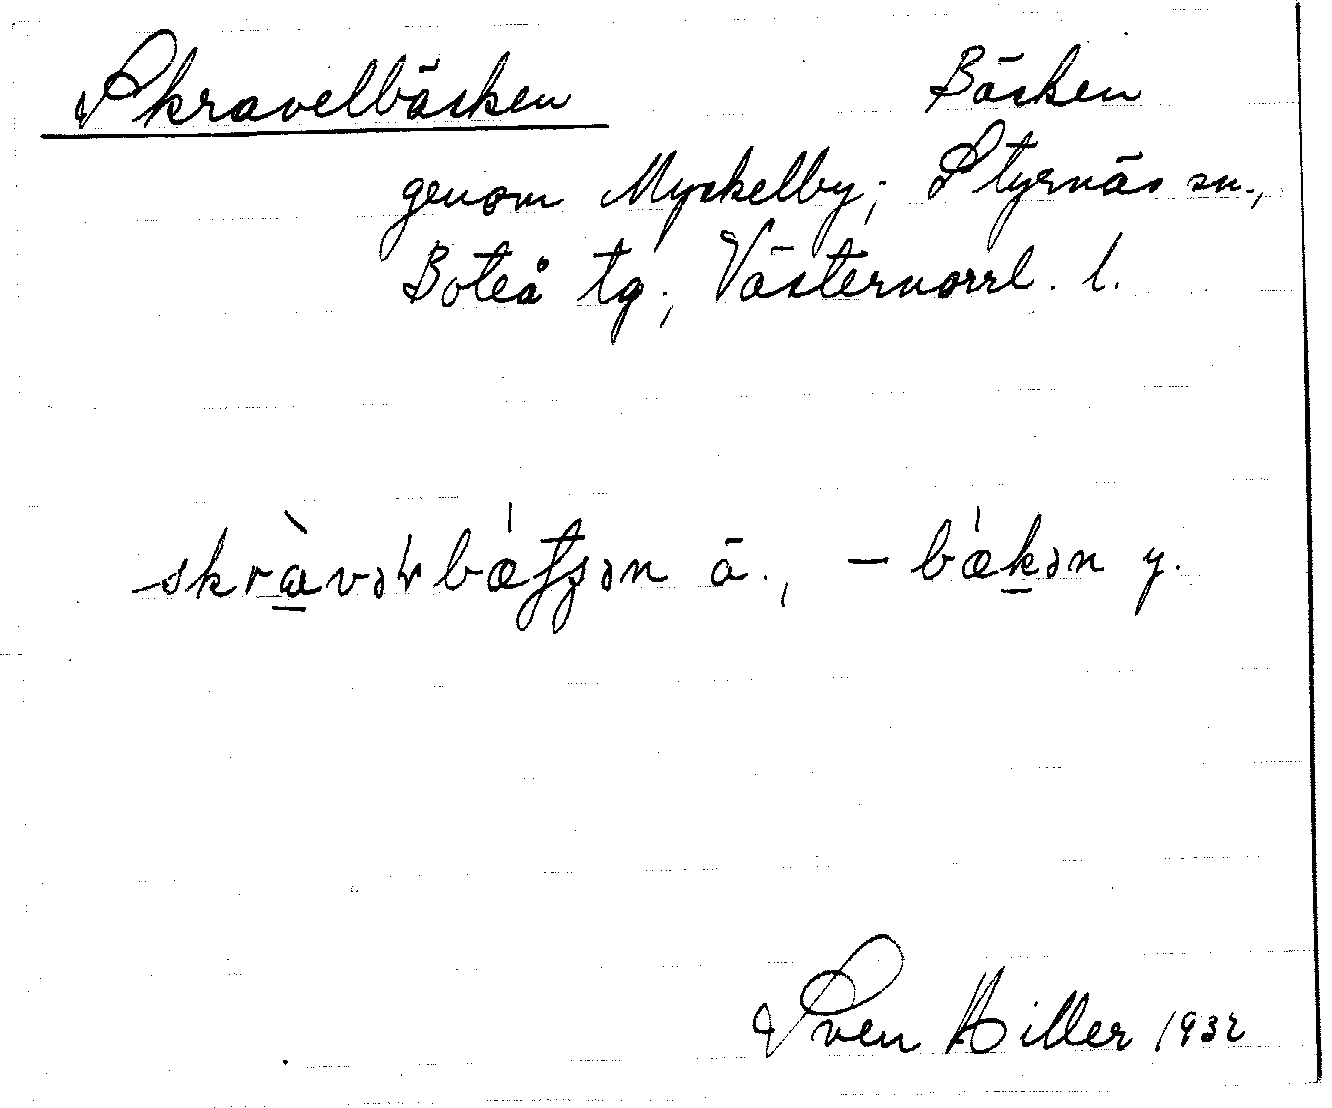 Skravelbäcken Bäcken
genom Myckelby; Styrnäs sn.,
Boteå tg.; Västernorrl. l.
skràvəɽbǽʈʂən ä., – bǽkən y.
Sven Hiller 1932